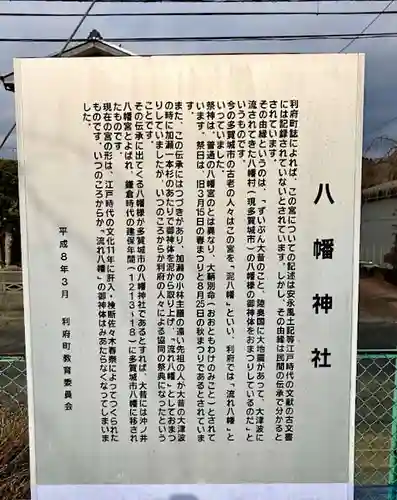 八幡神社
利府町誌によれば、この宮についての記述は安永風土記等江戸時代の文献の古文書
には記録されていないとされています。しかし、その由緒は民間の伝承で分かると
されています。
その由緒というのは、「ずいぶん大昔のこと、陸奥国に大地震があって、大津波に
流されてきた八幡村（現多賀城市）の八幡様の御神体をおまつりしているのだ」と
いうものです。
今の多賀城市の古老の人々はこの宮を「泥八幡」といい、利府では「流れ八幡」と
いっていました。
祭神は、普通の八幡宮のとは異なり、大鞆別命（おおともわけのみこと）とされて
います。祭日は、旧3月15日の春まつりと8月25日の秋まつりであるとされていま
す。
また、この伝承にはつづきがあり、加瀬の小林主膳の遠い先祖の人が大昔の大津波
の時に加瀬一本杉のあたりで御神体を泥から取り上げ、「流れ八幡」としておまつ
りしていましたが、いつのころからか利府の人々による協同の祭典になったという
ことです。
その伝承に出てくる八幡様が多賀城市の八幡神社であるとすれば、大昔には沖ノ井
八幡宮とよばれ、鎌倉時代の建保年間（1213～18）に多賀城市八幡に移され
たものです。
現在の宮の形は、江戸時代の文化11年に肝入・検断佐々木春奈によってつくられた
ものです。いつのころからか「流れ八幡」の御神体はみあたらなくなってしまいま
した。
平成8年3月　利府町教育委員会